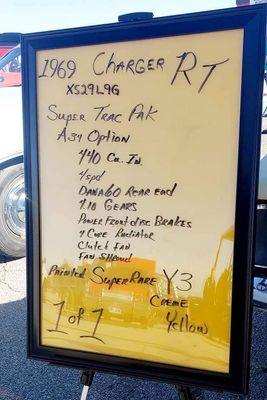 1969 CHARGER RT
XS29L9G
SUPER TRAC PAK
A34 OPTION
440 CU. IN.
4spd
DANA60 REAR END
4.10 GEARS
POWER FRONT disc BRAKES
7 CORE Radiator
Clutch FAN
FAN SHROUD
PAINTED SUPER RARE Y3
CREME
1 of 1 Yellow